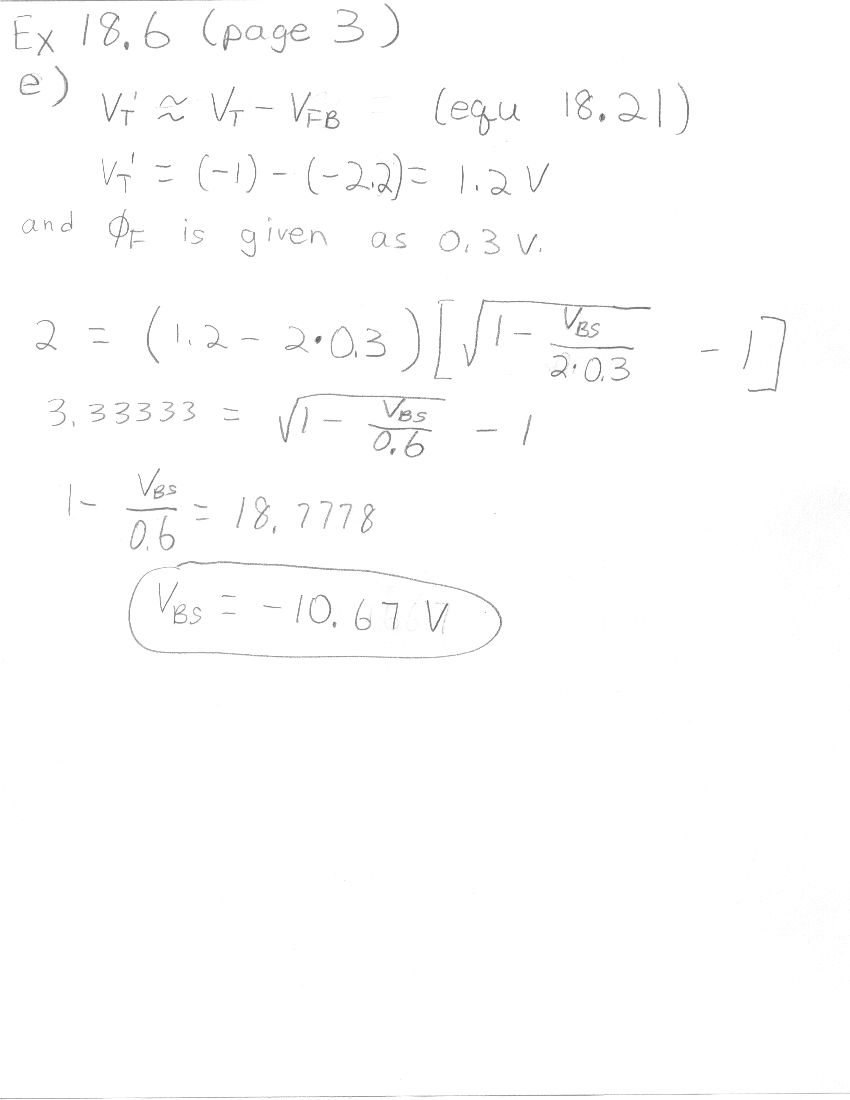 Ex 18.6 (page 3)
e)
V_T' ≈ V_T - V_FB (equ 18.21)
V_T' = (-1) - (-2.2) = 1.2 V
and ϕ_F is given as 0.3 V.
2 = (1.2 - 2·0.3) [√(1 - V_BS/(2·0.3)) - 1]
3.33333 = √(1 - V_BS/0.6) - 1
1 - V_BS/0.6 = 18.7778
V_BS = -10.67 V